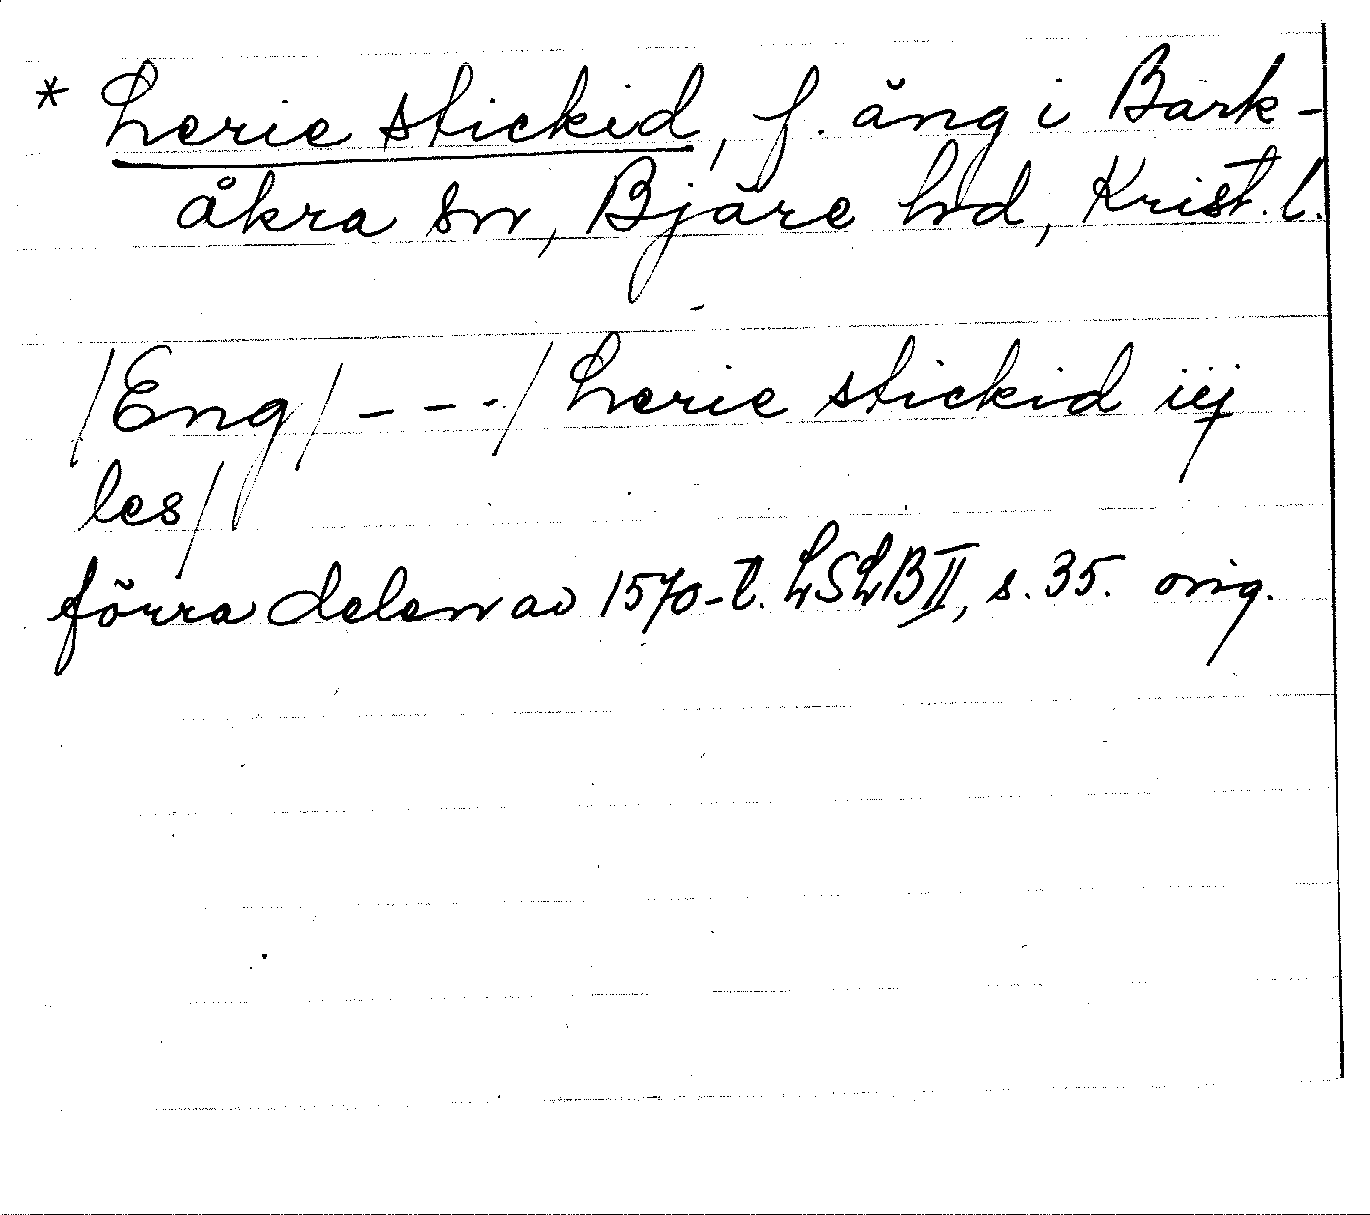 * Lerie stickid, f. äng i Bark-
åkra sn, Bjäre hd, Krist. l.
/Eng/ - - - / Lerie stickid iij
les/
förra delen av 1570-t. LSLB II, s. 35. orig.